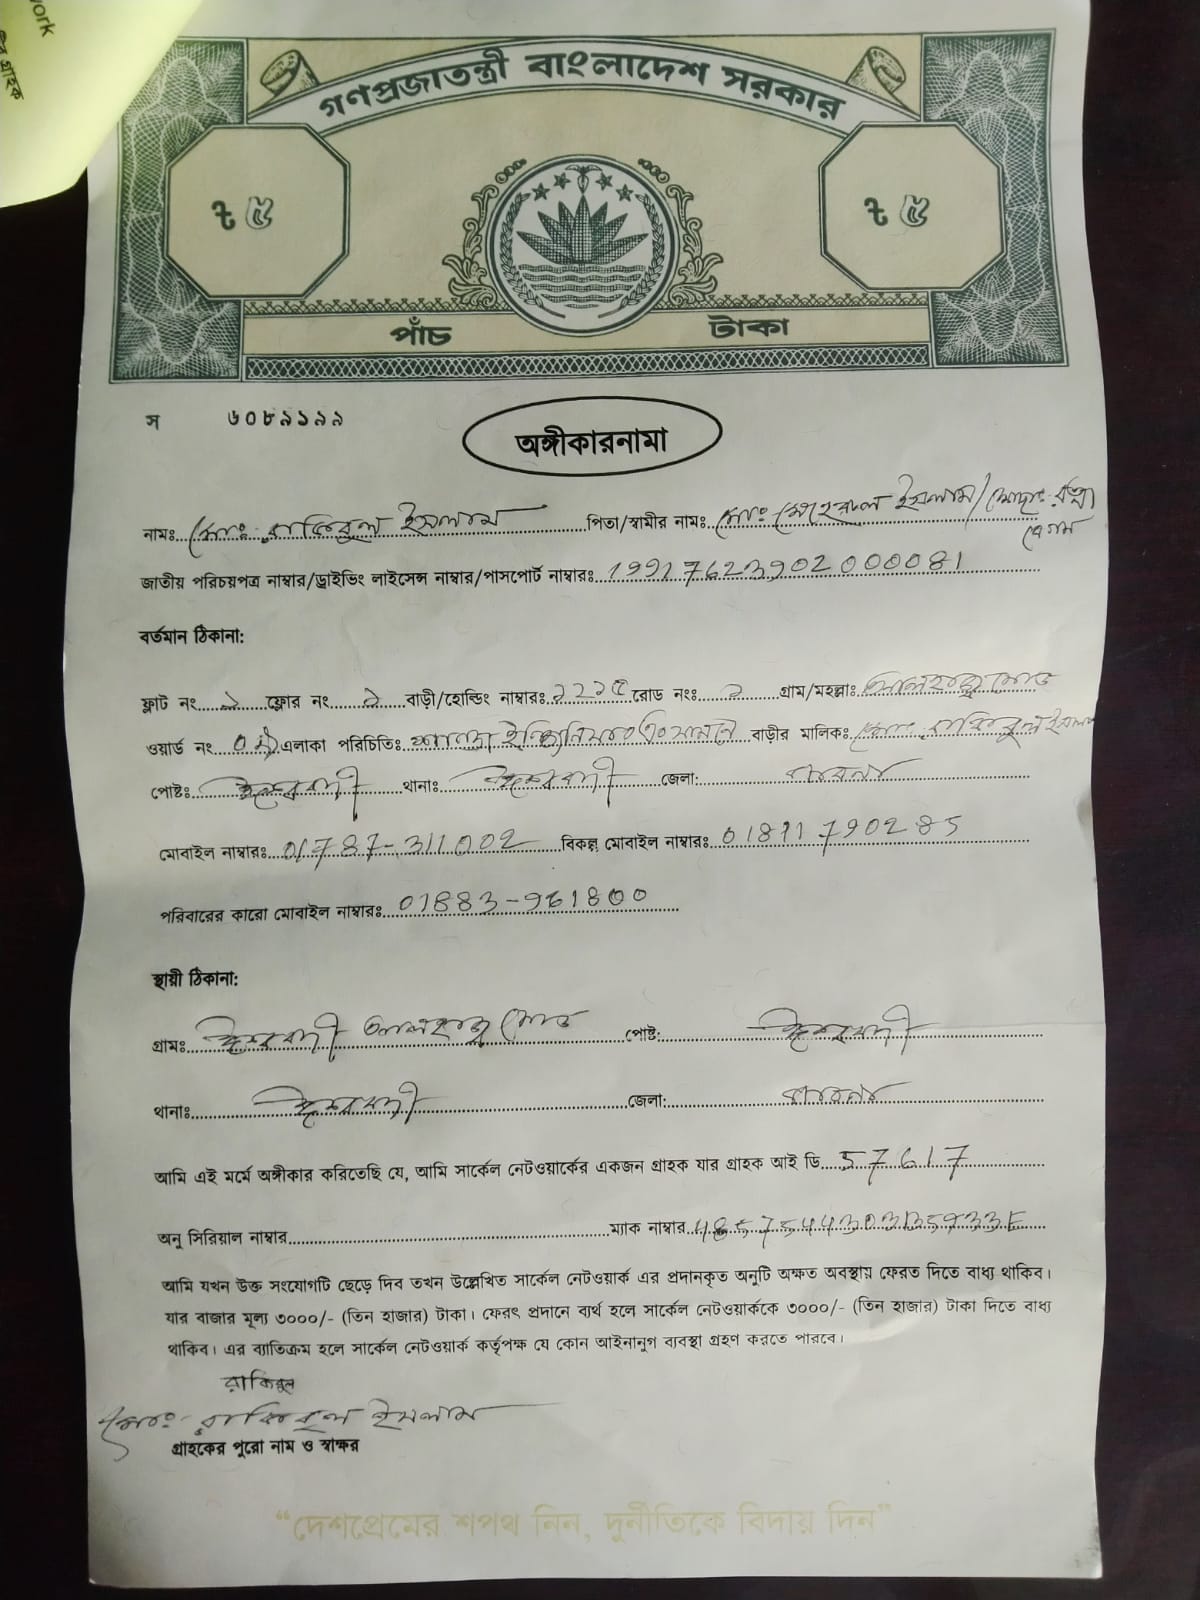 work
গ্রাহক
গণপ্রজাতন্ত্রী বাংলাদেশ সরকার
৳ ৫ ৳ ৫
পাঁচ টাকা
স ৬০৮৯১৯৯
অঙ্গীকারনামা
নামঃ মোঃ রাকিবুল ইসলাম পিতা/স্বামীর নাম: মোঃ মেহেরুল ইসলাম/মোছাঃ রত্না
বেগম
জাতীয় পরিচয়পত্র নাম্বার/ড্রাইভিং লাইসেন্স নাম্বার/পাসপোর্ট নাম্বারঃ 19917623902000081
বর্তমান ঠিকানা:
ফ্লাট নং ১ ফ্লোর নং ১ বাড়ী/হোল্ডিং নাম্বারঃ রোড নংঃ ১ গ্রাম/মহল্লাঃ আলহাজ্ব মোড
ওয়ার্ড নং 01 এলাকা পরিচিতিঃ বাড়ীর মালিকঃ মোঃ রাকিবুল ইসলাম
পোষ্টঃ ঈশ্বরদী থানাঃ ঈশ্বরদী জেলা: পাবনা
মোবাইল নাম্বারঃ 01787-311002 বিকল্প মোবাইল নাম্বারঃ 01811790285
পরিবারের কারো মোবাইল নাম্বারঃ 01883-961800
স্থায়ী ঠিকানা:
গ্রামঃ ঈশ্বরদী আলহাজ্ব মোড পোষ্ট: ঈশ্বরদী
থানাঃ ঈশ্বরদী জেলা: পাবনা
আমি এই মর্মে অঙ্গীকার করিতেছি যে, আমি সার্কেল নেটওয়ার্কের একজন গ্রাহক যার গ্রাহক আই ডি 57617
অনু সিরিয়াল নাম্বার ম্যাক নাম্বার
আমি যখন উক্ত সংযোগটি ছেড়ে দিব তখন উল্লেখিত সার্কেল নেটওয়ার্ক এর প্রদানকৃত অনুটি অক্ষত অবস্থায় ফেরত দিতে বাধ্য থাকিব।
যার বাজার মূল্য ৩০০০/- (তিন হাজার) টাকা। ফেরৎ প্রদানে ব্যর্থ হলে সার্কেল নেটওয়ার্ককে ৩০০০/- (তিন হাজার) টাকা দিতে বাধ্য
থাকিব। এর ব্যাতিক্রম হলে সার্কেল নেটওয়ার্ক কর্তৃপক্ষ যে কোন আইনানুগ ব্যবস্থা গ্রহণ করতে পারবে।
রাকিবুল
মোঃ রাকিবুল ইসলাম
গ্রাহকের পুরো নাম ও স্বাক্ষর
“দেশপ্রেমের শপথ নিন, দুর্নীতিকে বিদায় দিন”